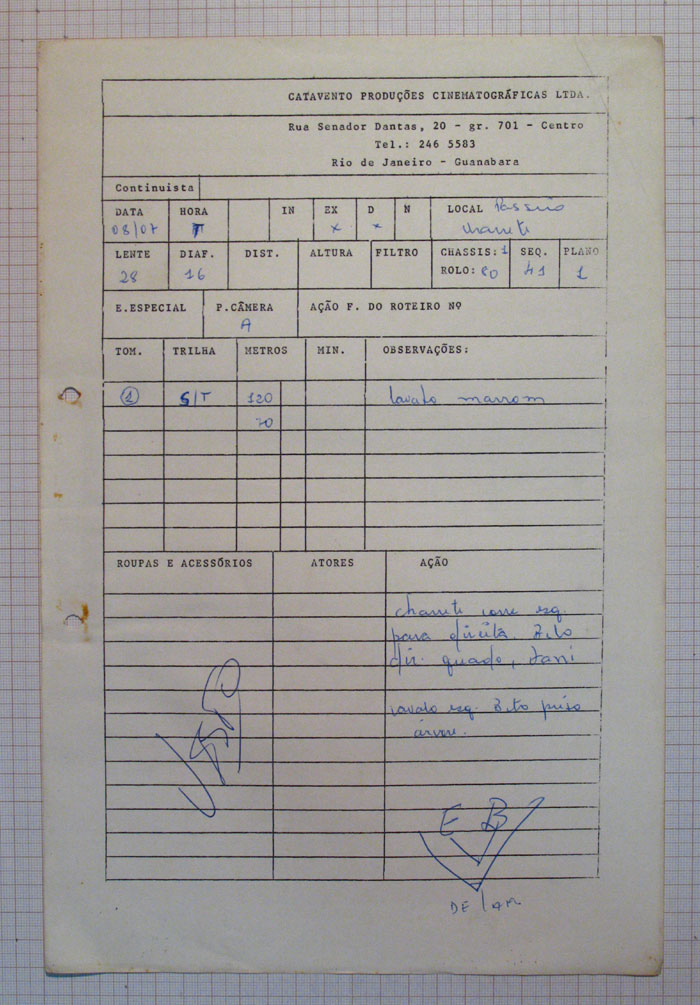 CATAVENTO PRODUÇÕES CINEMATOGRÁFICAS LTDA.
Rua Senador Dantas, 20 - gr. 701 - Centro
Tel.: 246 5583
Rio de Janeiro - Guanabara
Continuista
DATA HORA IN EX D N LOCAL Passeio
08/07 T x x charrete
LENTE DIAF. DIST. ALTURA FILTRO CHASSIS: 1 SEQ. PLANO
28 16 ROLO: 80 41 1
E.ESPECIAL P.CÂMERA AÇÃO F. DO ROTEIRO Nº
A
TOM. TRILHA METROS MIN. OBSERVAÇÕES:
1 S/T 120 cavalo marrom
70
ROUPAS E ACESSÓRIOS ATORES AÇÃO
charrete corre esq.
para direita Zeto
dir. quado,
cavalo esq. Zeto preso
árvore.
E B
DE